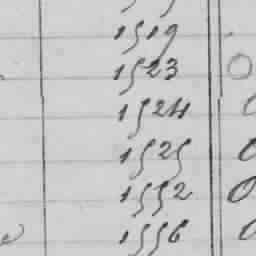 1519
1523 O
1524
1525
1552 O
1556